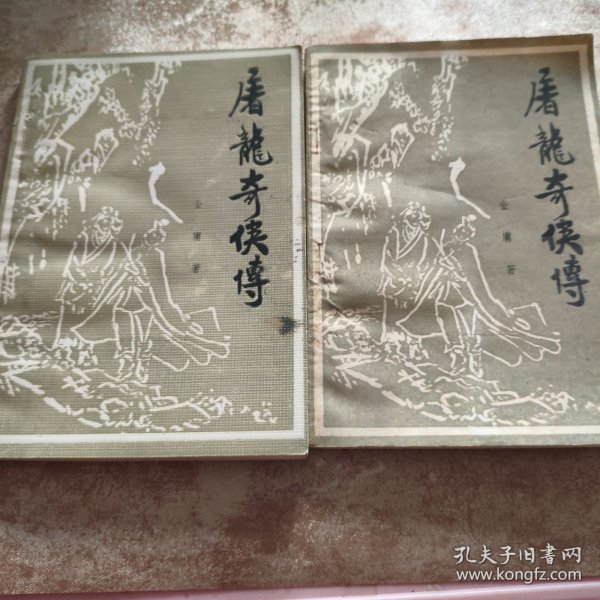 屠龍奇俠傳
金庸著
屠龍奇俠傳
金庸著
孔夫子旧书网
www.kongfz.com